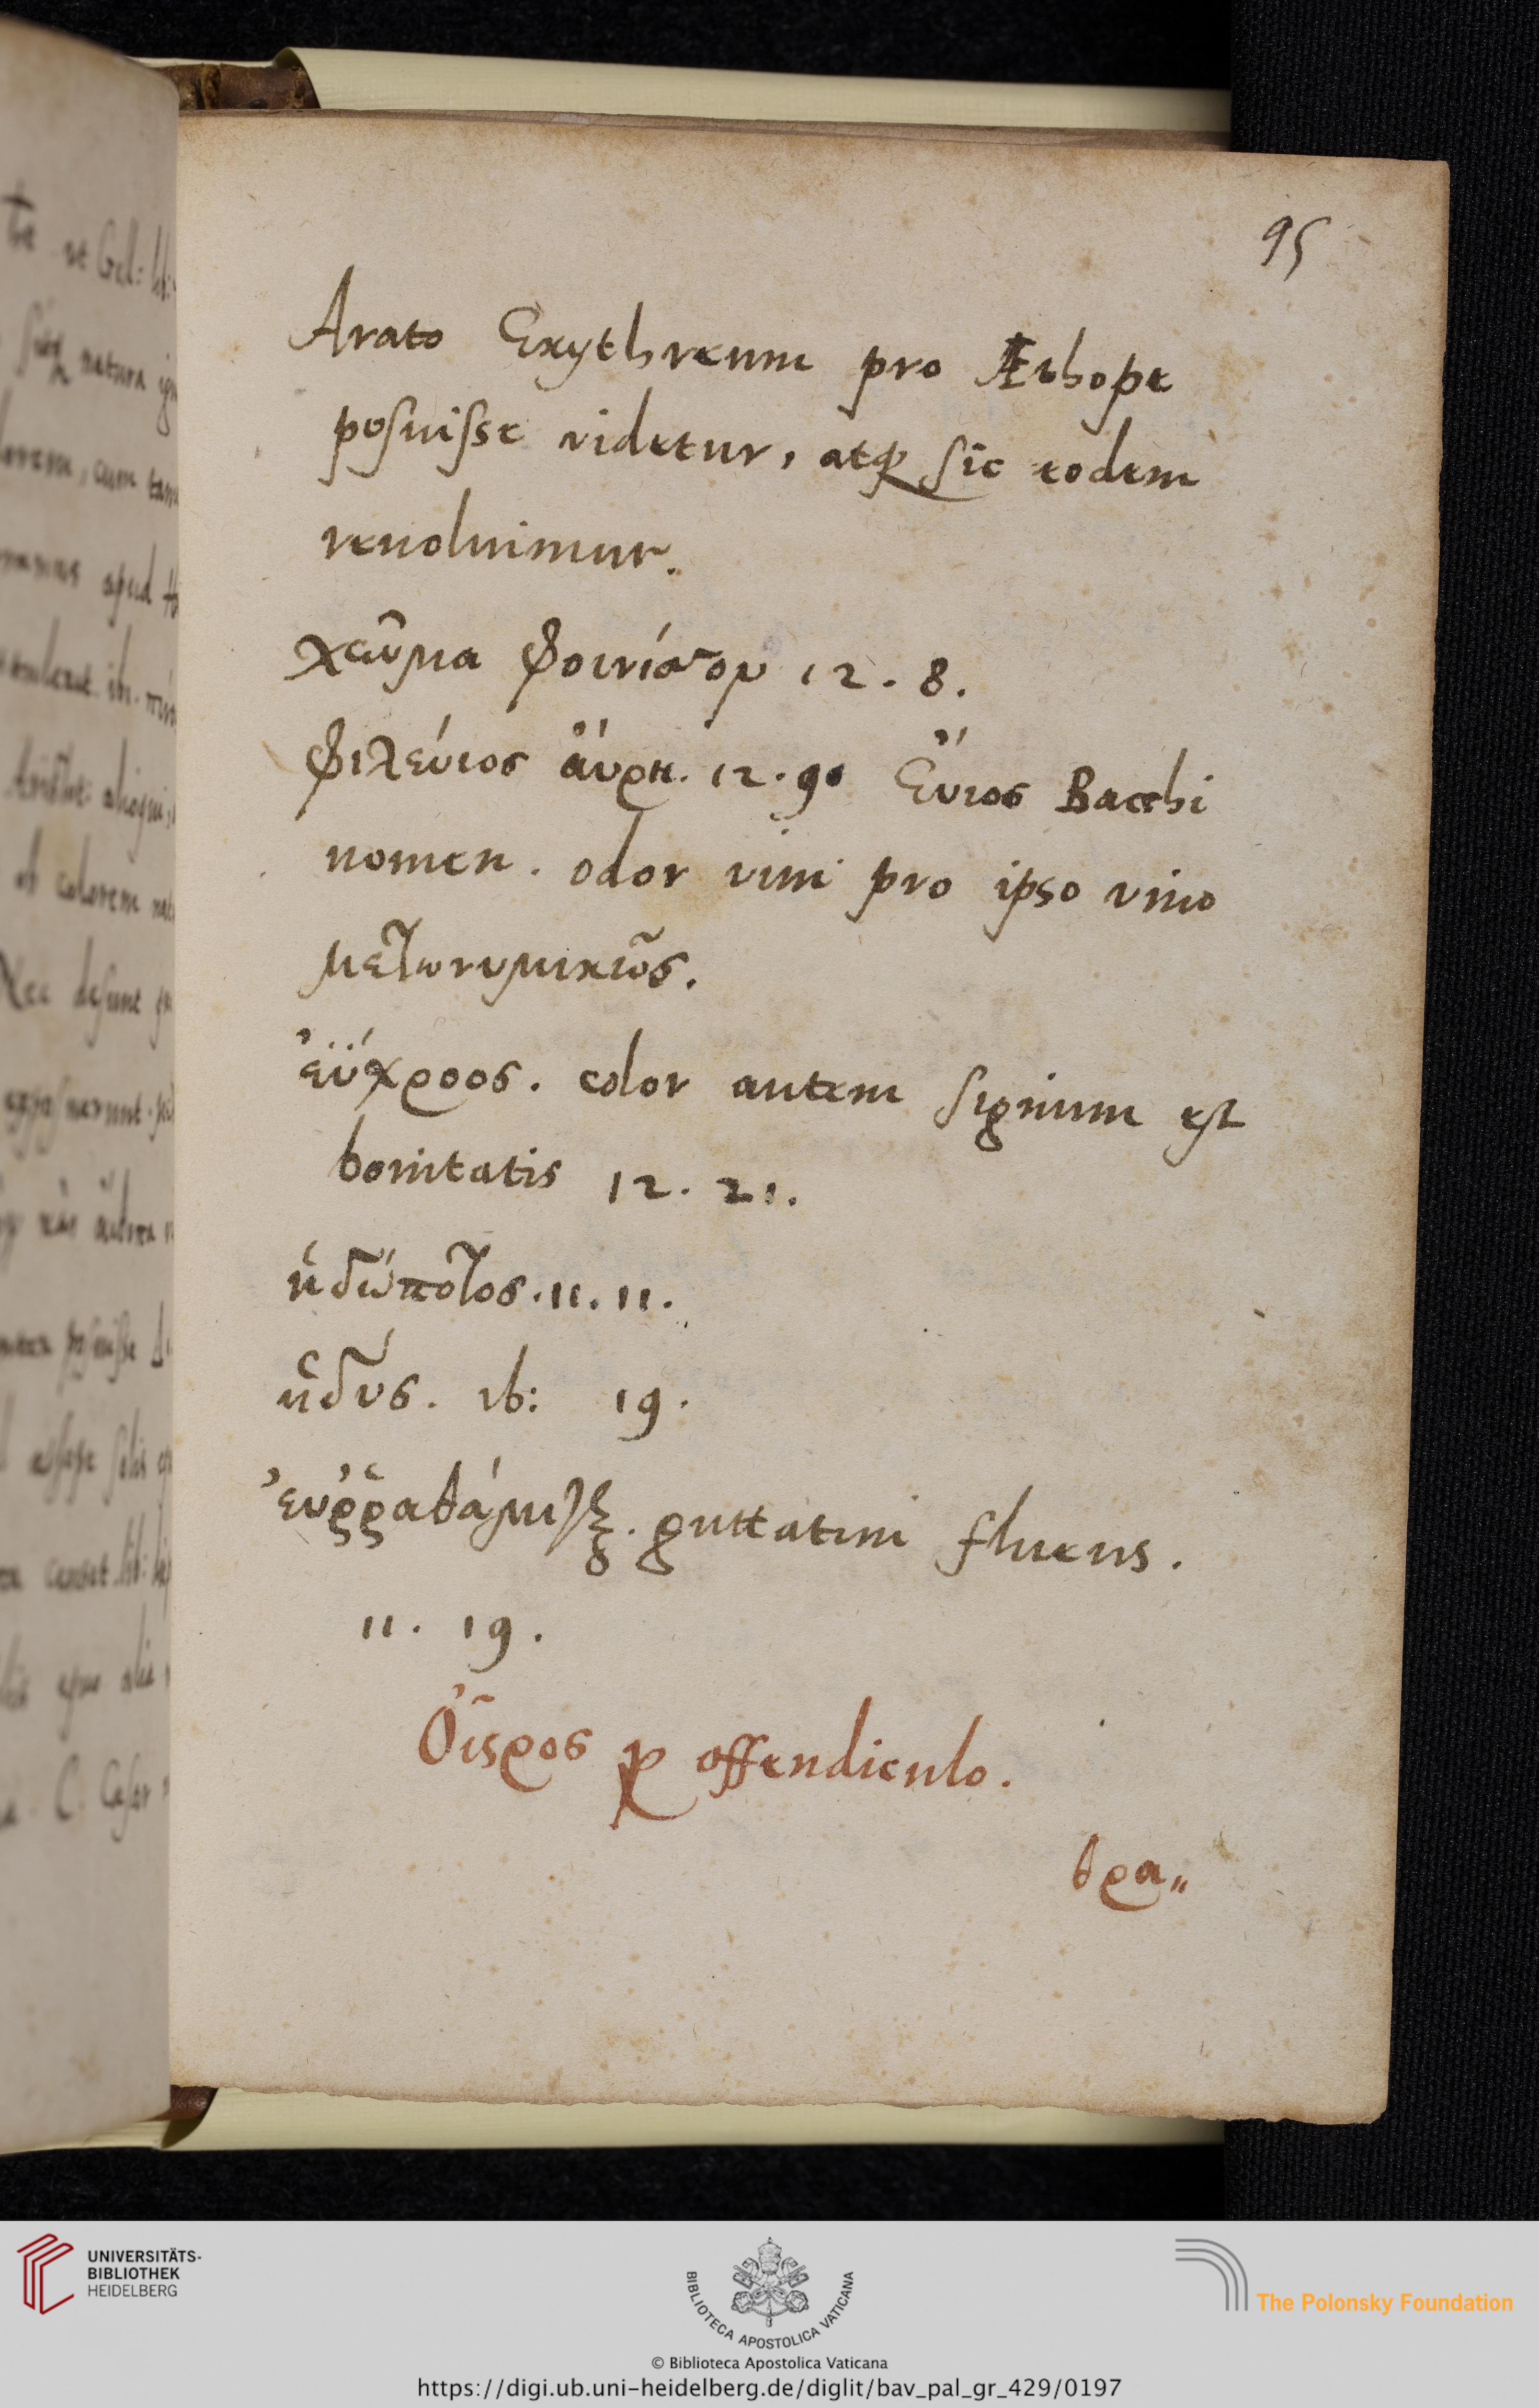 95
Arato Erythreum pro Æthope
posuisse videtur, atq sic eodem
revoluimur.
χεῦμα φοινίσσον 12. 8.
Φιλεύιος ἄυρη. 12. 9. Ἔυιος Bacchi
nomen. odor vini pro ipso vino
μετωνυμικῶς.
ἐΰχροος. color autem signum est
bonitatis 12. 21.
ἡδύποτος. 11. 11.
ἡδύς. ib: 19.
ἐυῤῥαθάμιγξ. guttatim fluens.
11. 19.
Οἶστρος p offendiculo.
θρα„
UNIVERSITÄTS-
BIBLIOTHEK
HEIDELBERG
BIBLIOTECA APOSTOLICA VATICANA
The Polonsky Foundation
© Biblioteca Apostolica Vaticana
https://digi.ub.uni-heidelberg.de/diglit/bav_pal_gr_429/0197